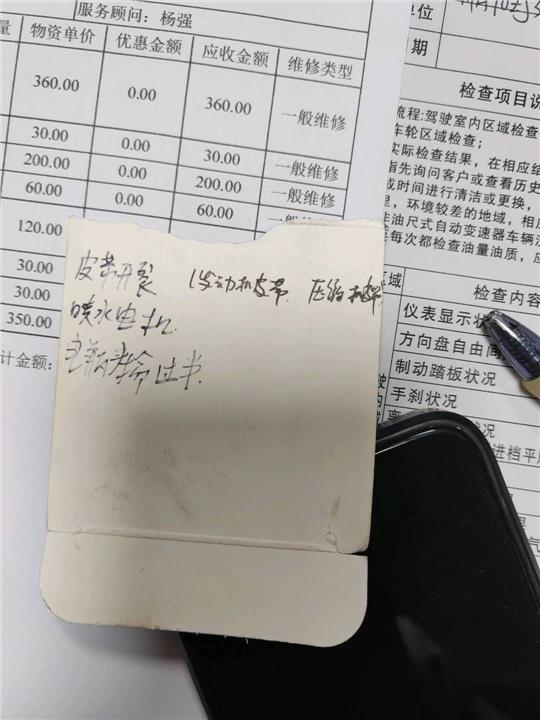 服务顾问：杨强
量 物资单价 优惠金额 应收金额 维修类型
360.00 0.00 360.00 一般维修
30.00 0.00 30.00 一般维修
200.00 0.00 200.00 一般维修
60.00 0.00 60.00
120.00
30.00
30.00
350.00
计金额：
皮带开裂 发动机皮带 压缩机皮带
喷水电机
电瓶寿命过半
单位
期
检查项目说
流程:驾驶室内区域检查
车轮区域检查；
实际检查结果，在相应结
指先询问客户或查看历史
或时间进行清洁或更换，
，环境较差的地域，相应
非油尺式自动变速器车辆没
每次都检查油量油质，应
区域 检查内容
仪表显示状
方向盘自由间
制动踏板状况
手刹状况
离 况
进档平顺